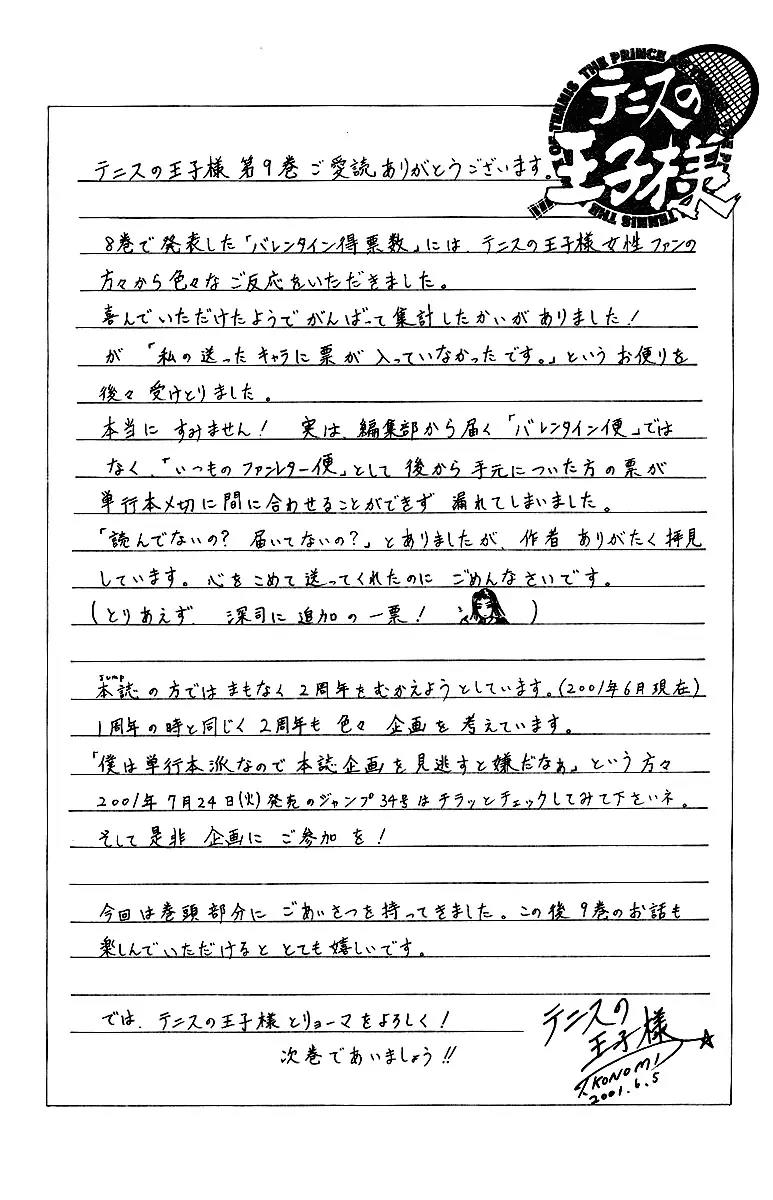 THE PRINCE OF TENNIS
テニスの
王子様
テニスの王子様 第9巻 ご愛読ありがとうございます。
8巻で発表した「バレンタイン得票数」には、テニスの王子様女性ファンの
方々から色々なご反応をいただきました。
喜んでいただけたようでがんばって集計したかいがありました!
が「私の送ったキャラに票が入っていなかったです。」というお便りを
後々受けとりました。
本当にすみません! 実は、編集部から届く「バレンタイン便」では
なく、「いつものファンレター便」として後から手元についた方の票が
単行本〆切に間に合わせることができず 漏れてしまいました。
「読んでないの? 届いてないの?」とありましたが、作者 ありがたく拝見
しています。心をこめて送ってくれたのに ごめんなさいです。
(とりあえず 深司に追加の一票! )
jump
本誌の方ではまもなく2周年をむかえようとしています。(2001年6月現在)
1周年の時と同じく2周年も色々 企画を考えています。
「僕は単行本派なので本誌企画を見逃すと嫌だなぁ」という方々
2001年7月24日(火)発売のジャンプ34号はチラッとチェックしてみて下さいネ。
そして是非 企画に ご参加を!
今回は巻頭部分に ごあいさつを持ってきました。この後9巻のお話も
楽しんでいただけると とても嬉しいです。
では、テニスの王子様とリョーマをよろしく!
次巻であいましょう!!
テニスの
王子様
T.KONOMI
2001.6.5